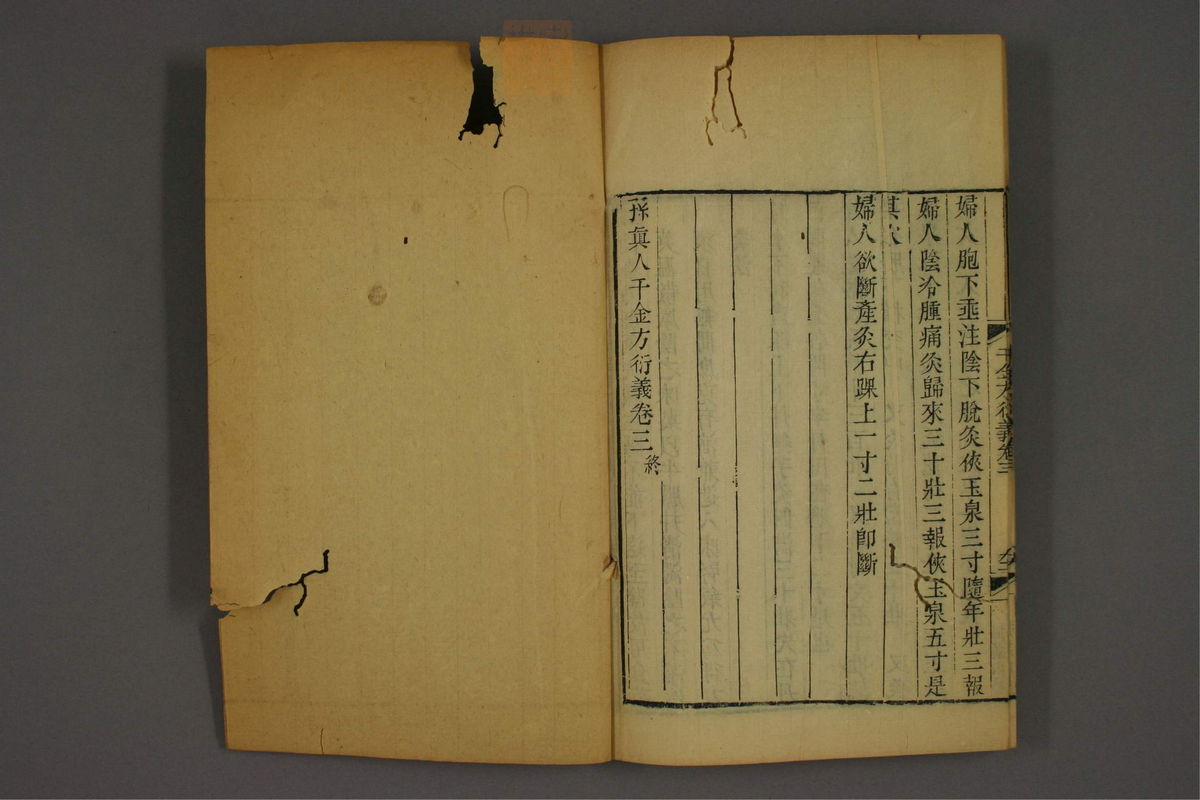 婦人胞下垂注陰下脫灸俠玉泉三寸隨年壯三報
婦人陰冷腫痛灸歸來三十壯三報俠玉泉五寸是
其穴
婦人欲斷產灸右踝上一寸二壯即斷
孫真人千金方衍義卷三終
千金方衍義卷三